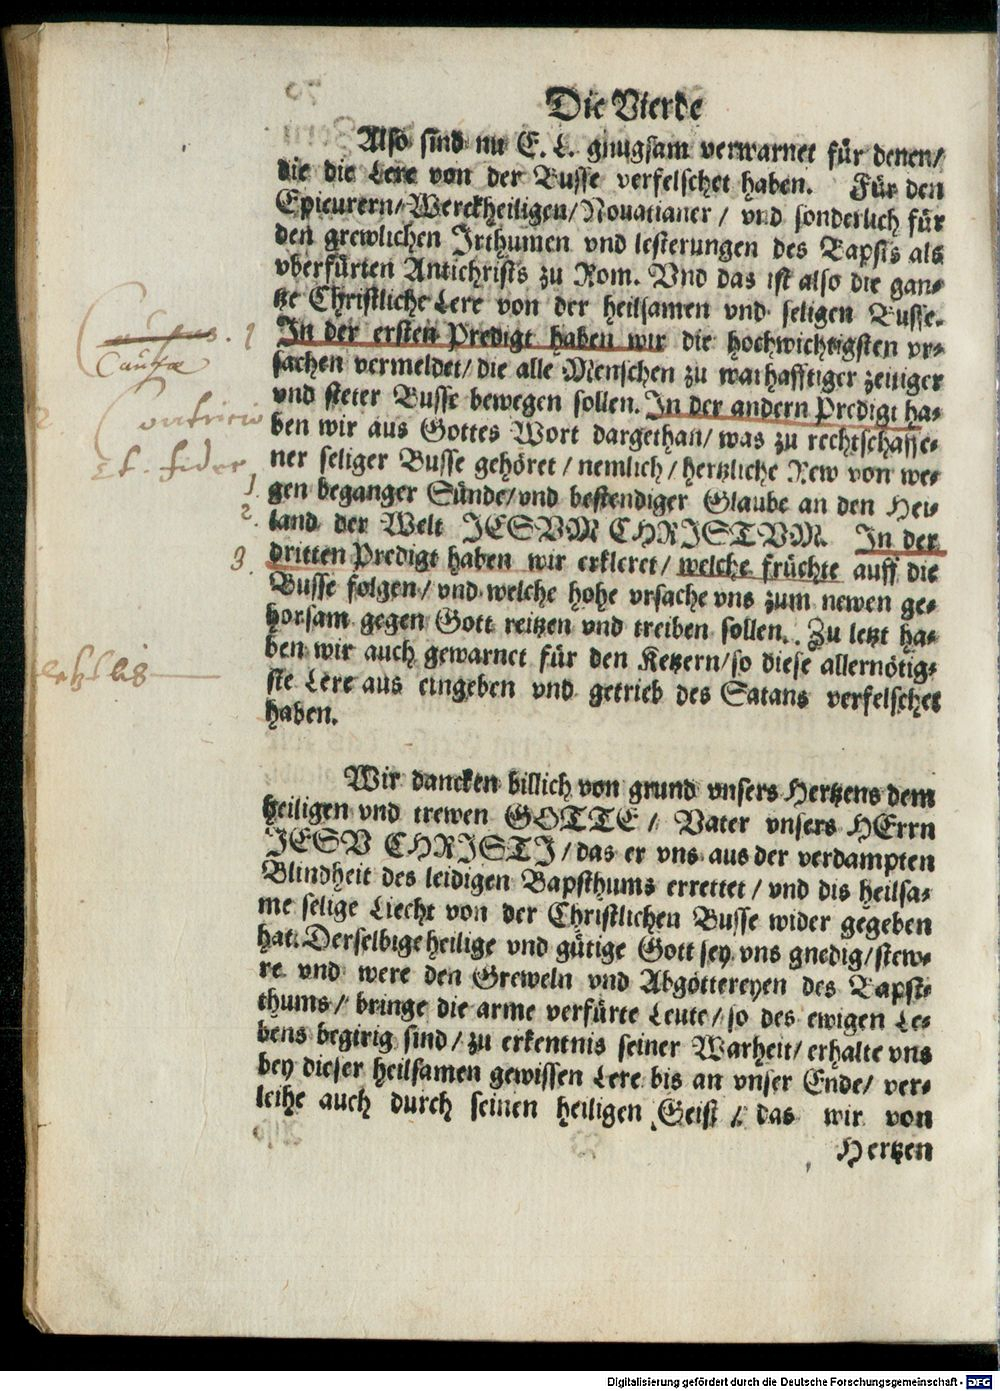 Die Vierde
Also sind nu E. L. gnugsam verwarnet für denen/
die die Lere von der Busse verfelschet haben. Für den
Epicurern/Werckheiligen/Nouatianer/ vnd sonderlich für
den grewlichen Irthumen vnd lesterungen des Bapsts als
vberfürten Antichrists zu Rom. Vnd das ist also die gan-
tze Christliche Lere von der heilsamen vnd seligen Busse.
In der ersten Predigt haben wir die hochwichtigsten vr-
sachen vermeldet/ die alle Menschen zu warhafftiger zeitiger
vnd steter Busse bewegen sollen. In der andern Predigt ha-
ben wir aus Gottes Wort dargethan/ was zu rechtschaffe-
ner seliger Busse gehöret/ nemlich/ hertzliche Rew von we-
gen beganger Sünde/vnd bestendiger Glaube an den Hei-
land der Welt JESVM CHRISTVM. In der
dritten Predigt haben wir erkleret/ welche früchte auff die
Busse folgen/ vnd welche hohe vrsache vns zum newen ge-
horsam gegen Gott reitzen vnd treiben sollen. Zu letzt ha-
ben wir auch gewarnet für den Ketzern/so diese allernötig-
ste Lere aus eingeben vnd getrieb des Satans verfelschet
haben.
Wir dancken billich von grund vnsers Hertzens dem
heiligen vnd trewen GOTTE/ Vater vnsers HErrn
JESV CHRISTJ/das er vns aus der verdampten
Blindheit des leidigen Bapsthums errettet/ vnd dis heilsa-
me selige Liecht von der Christlichen Busse wider gegeben
hat. Derselbige heilige vnd gütige Gott sey vns gnedig/stew-
re vnd were den Greweln vnd Abgöttereyen des Bapst-
thums/ bringe die arme verfürte Leute/so des ewigen Le-
bens begirig sind/ zu erkentnis seiner Warheit/ erhalte vns
bey dieser heilsamen gewissen Lere bis an vnser Ende/ ver-
leihe auch durch seinen heiligen Geist/ das wir von
Hertzen
1
Causae
2
Contritio
et fides
1.
2.
3.
Digitalisierung gefördert durch die Deutsche Forschungsgemeinschaft - DFG